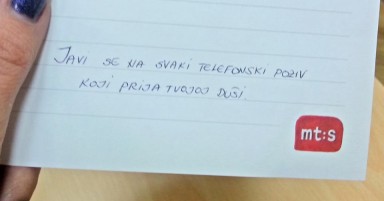 JAVI SE NA SVAKI TELEFONSKI POZIV
KOJI PRIJA TVOJOJ DUŠI.
mt:s